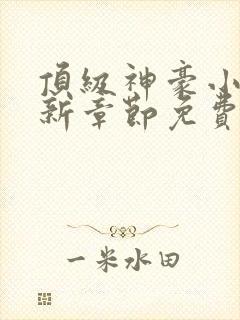 頂級神豪小
新章節免費
一米水田